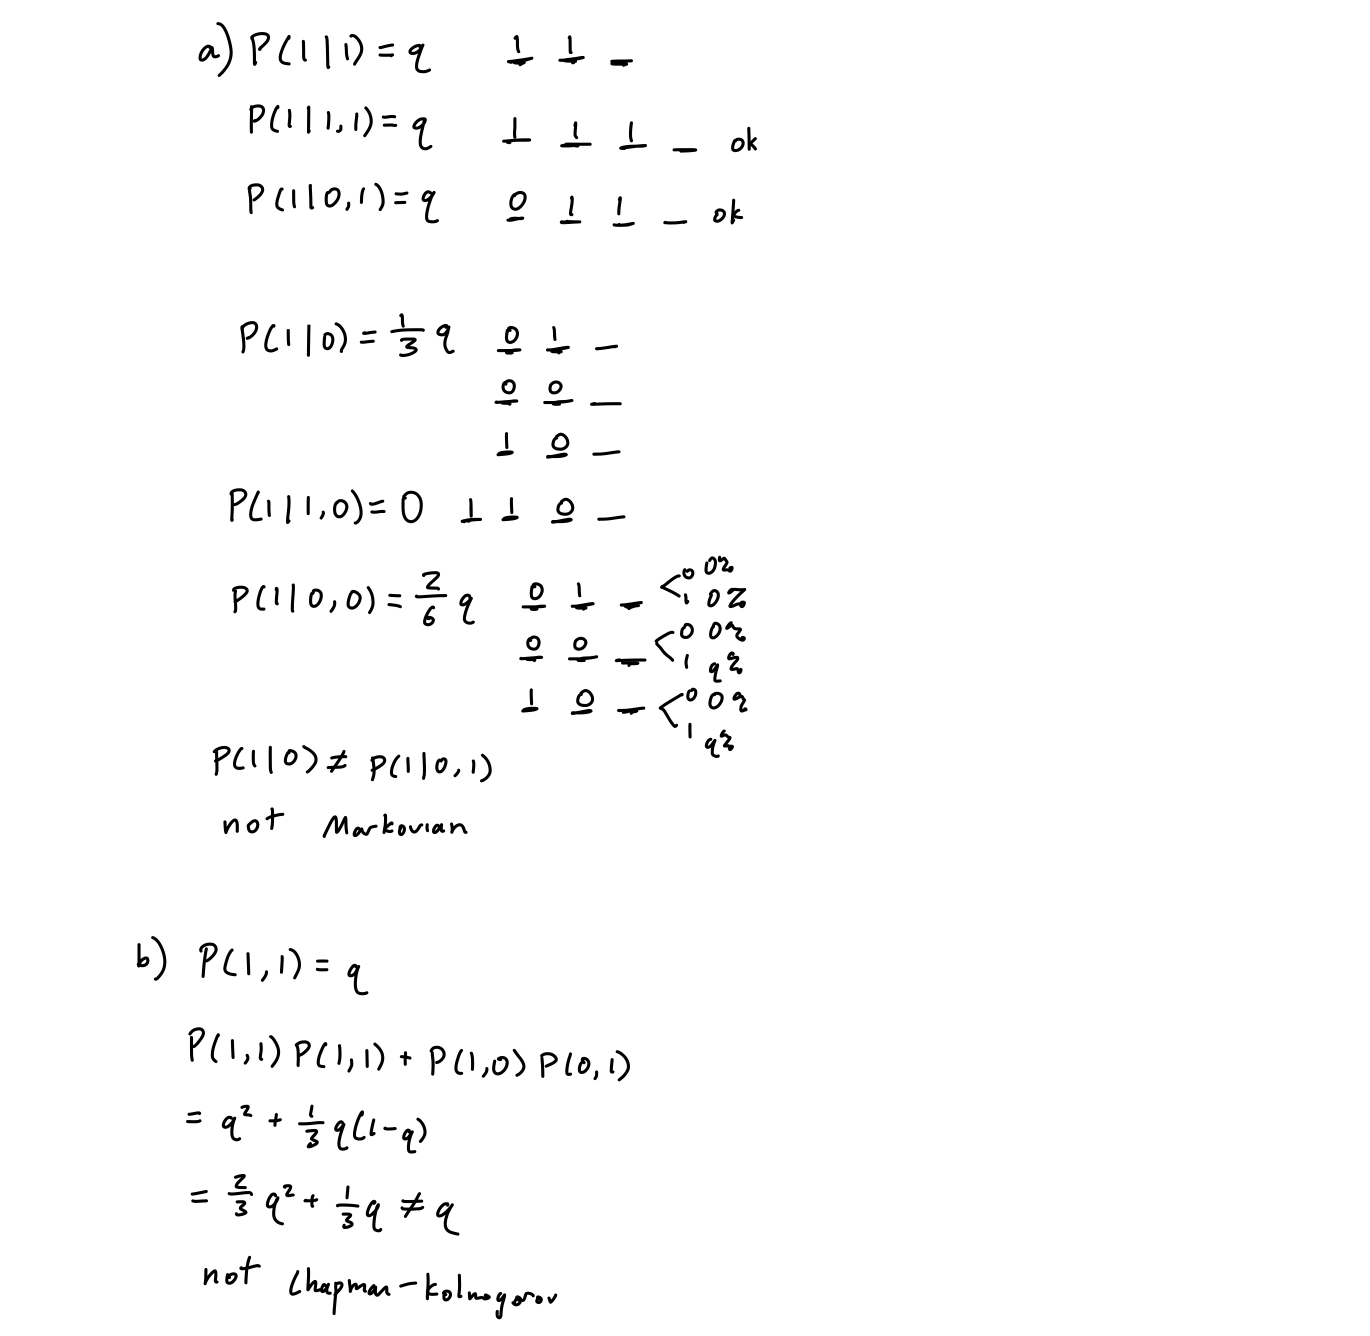 a) P(1|1) = q 1 1 _
P(1|1,1) = q 1 1 1 _ ok
P(1|0,1) = q 0 1 1 _ ok
P(1|0) = 1/3 q 0 1 _
0 0 _
1 0 _
P(1|1,0) = 0 1 1 0 _
P(1|0,0) = 2/6 q 0 1 _ < 0 0
1 0
0 0 _ < 0 0
1 q
1 0 _ < 0 0
1 q
P(1|0) ≠ P(1|0,1)
not Markovian
b) P(1,1) = q
P(1,1) P(1,1) + P(1,0) P(0,1)
= q² + 1/3 q(1-q)
= 2/3 q² + 1/3 q ≠ q
not Chapman-Kolmogorov